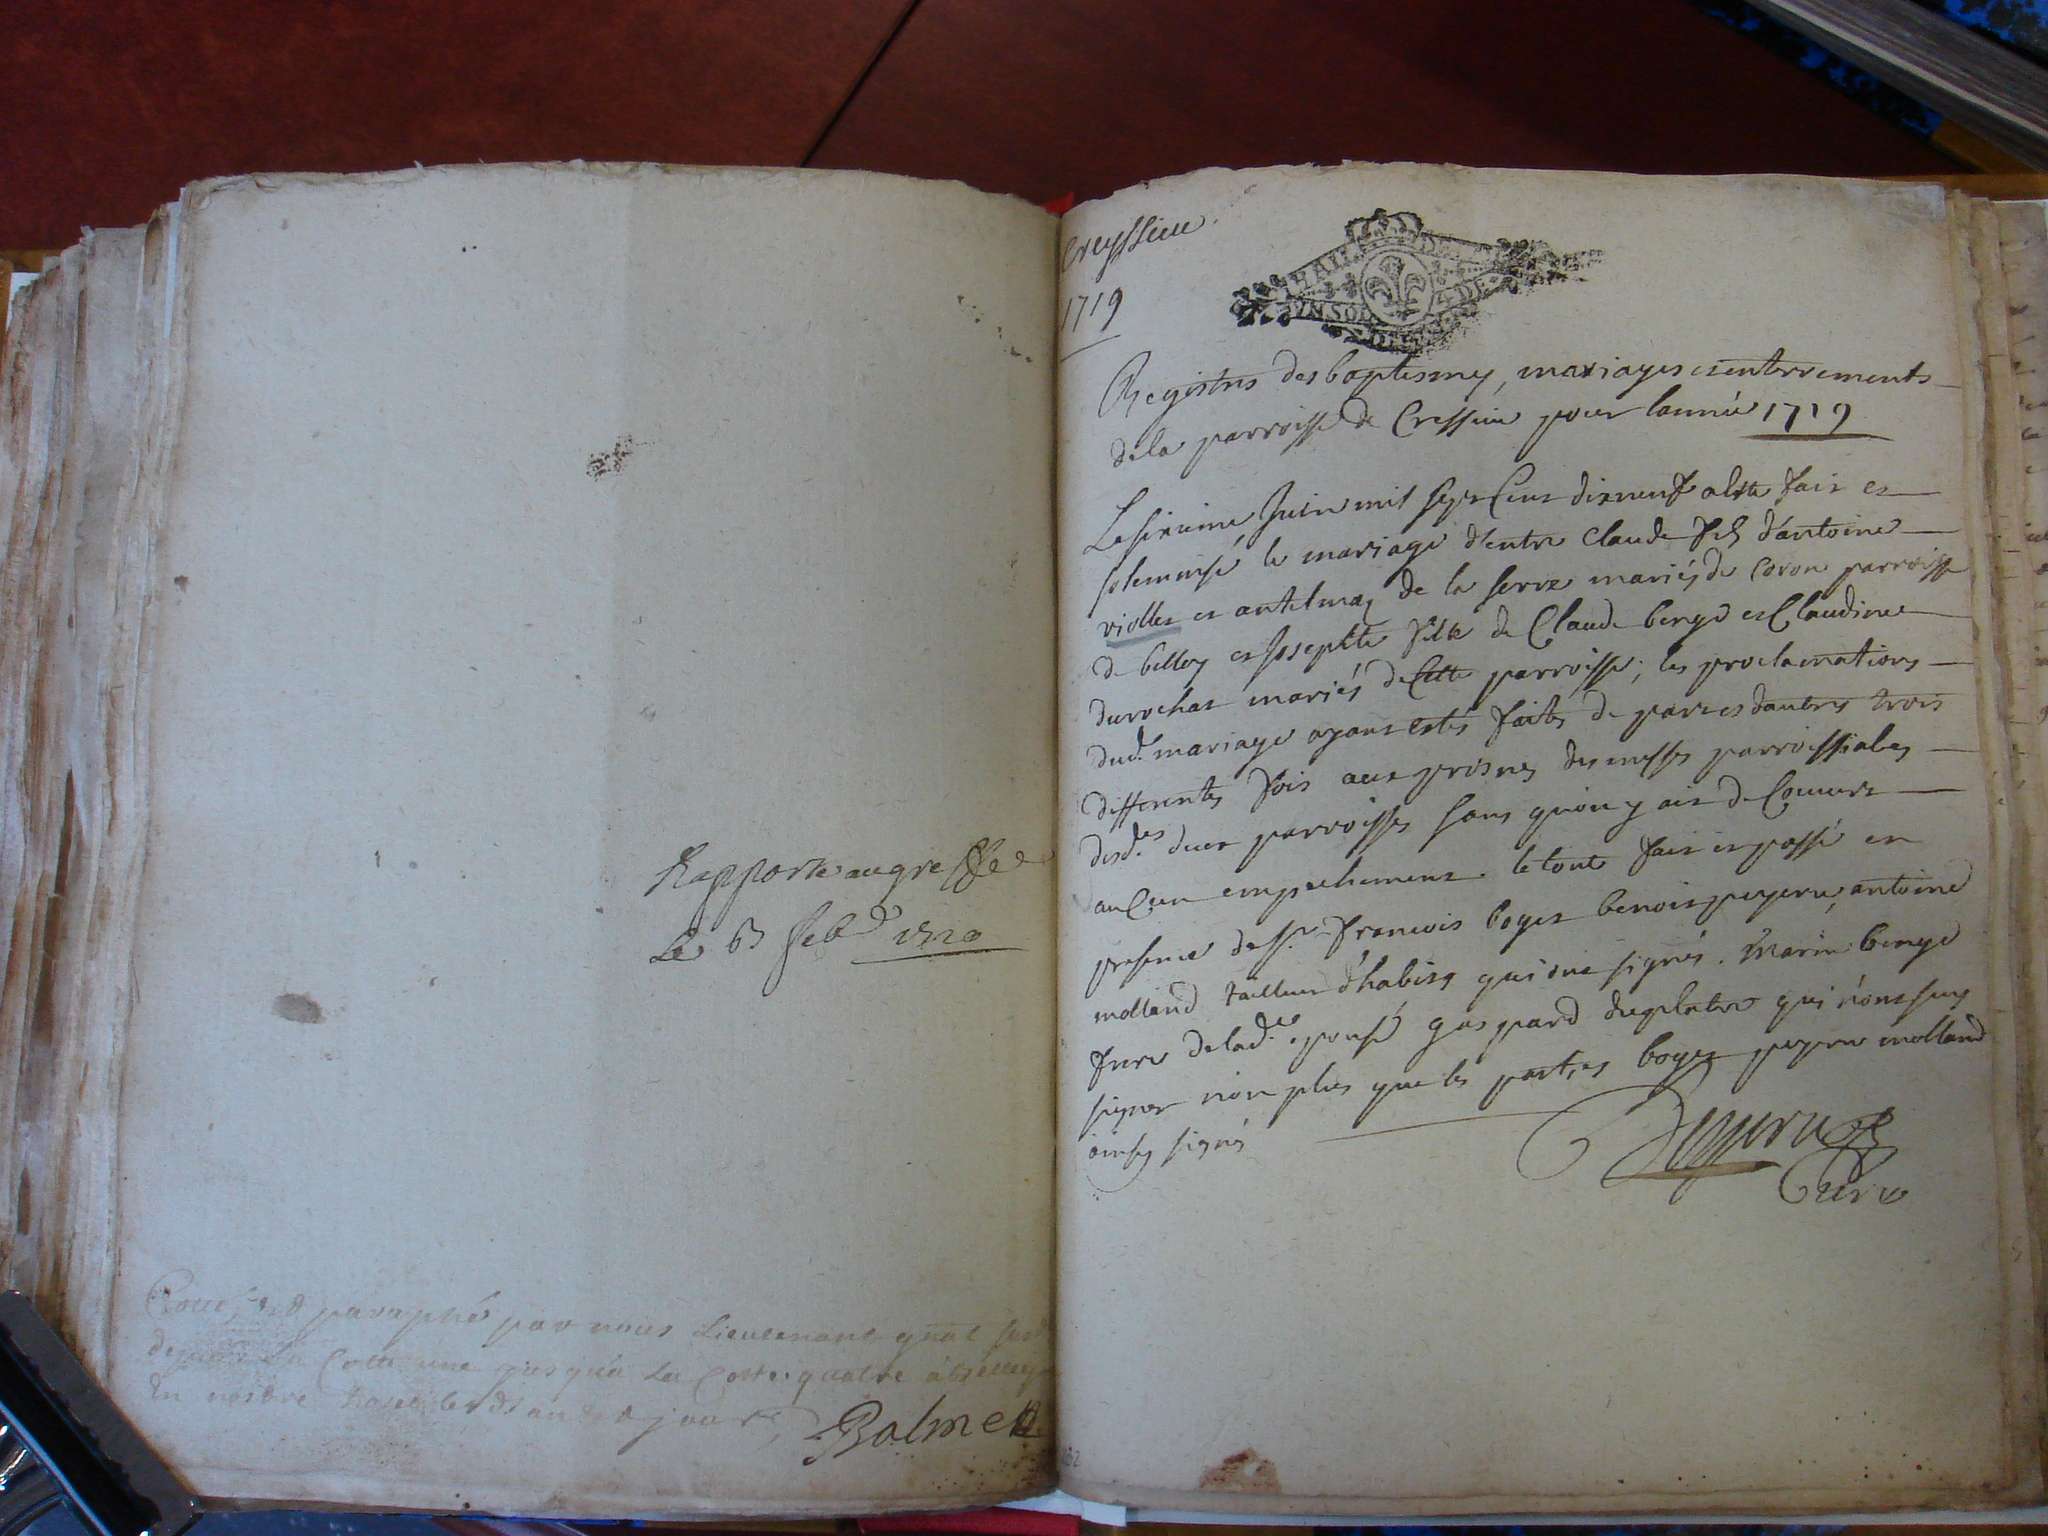 Rapporté au greffe
Le 6 feb. 1720
paraphé par nous Lieutenant
jusqu'a La Cotte quatre
En nostre
Balme
Creyssieu
1719
VN SOL 4 DE
Registres des baptesmes, mariages et enterrements
de la parroisse de Cressieu pour lannée 1719
Le sixieme Juin mil sept Cent dixneuf a esté fait et
solemnisé le mariage d'entre Claude fils d'antoine
viollet et antelmaz de la serve mariés de Coron parroisse
de belley et Josephte fille de Claude berge et Claudine
durochat mariés de Cette parroisse; les proclamations
dud. mariage ayant estés faites de part et dautres trois
differentes fois aux prosnes des messes parroissiales
desd.es deux parroisses sans qu'on y ait decouvert
auCun empechement. le tout fait et passé en
presence de Sr. francois boget benoit peyeru, antoine
molland tailleur d'habits qui ont signés. Marin berge
frere de lad.e epouse gaspard duplatre qui n'ont sceus
signer non plus que les parties boget peyeru molland
ainsy signés
Peyeru
Curé